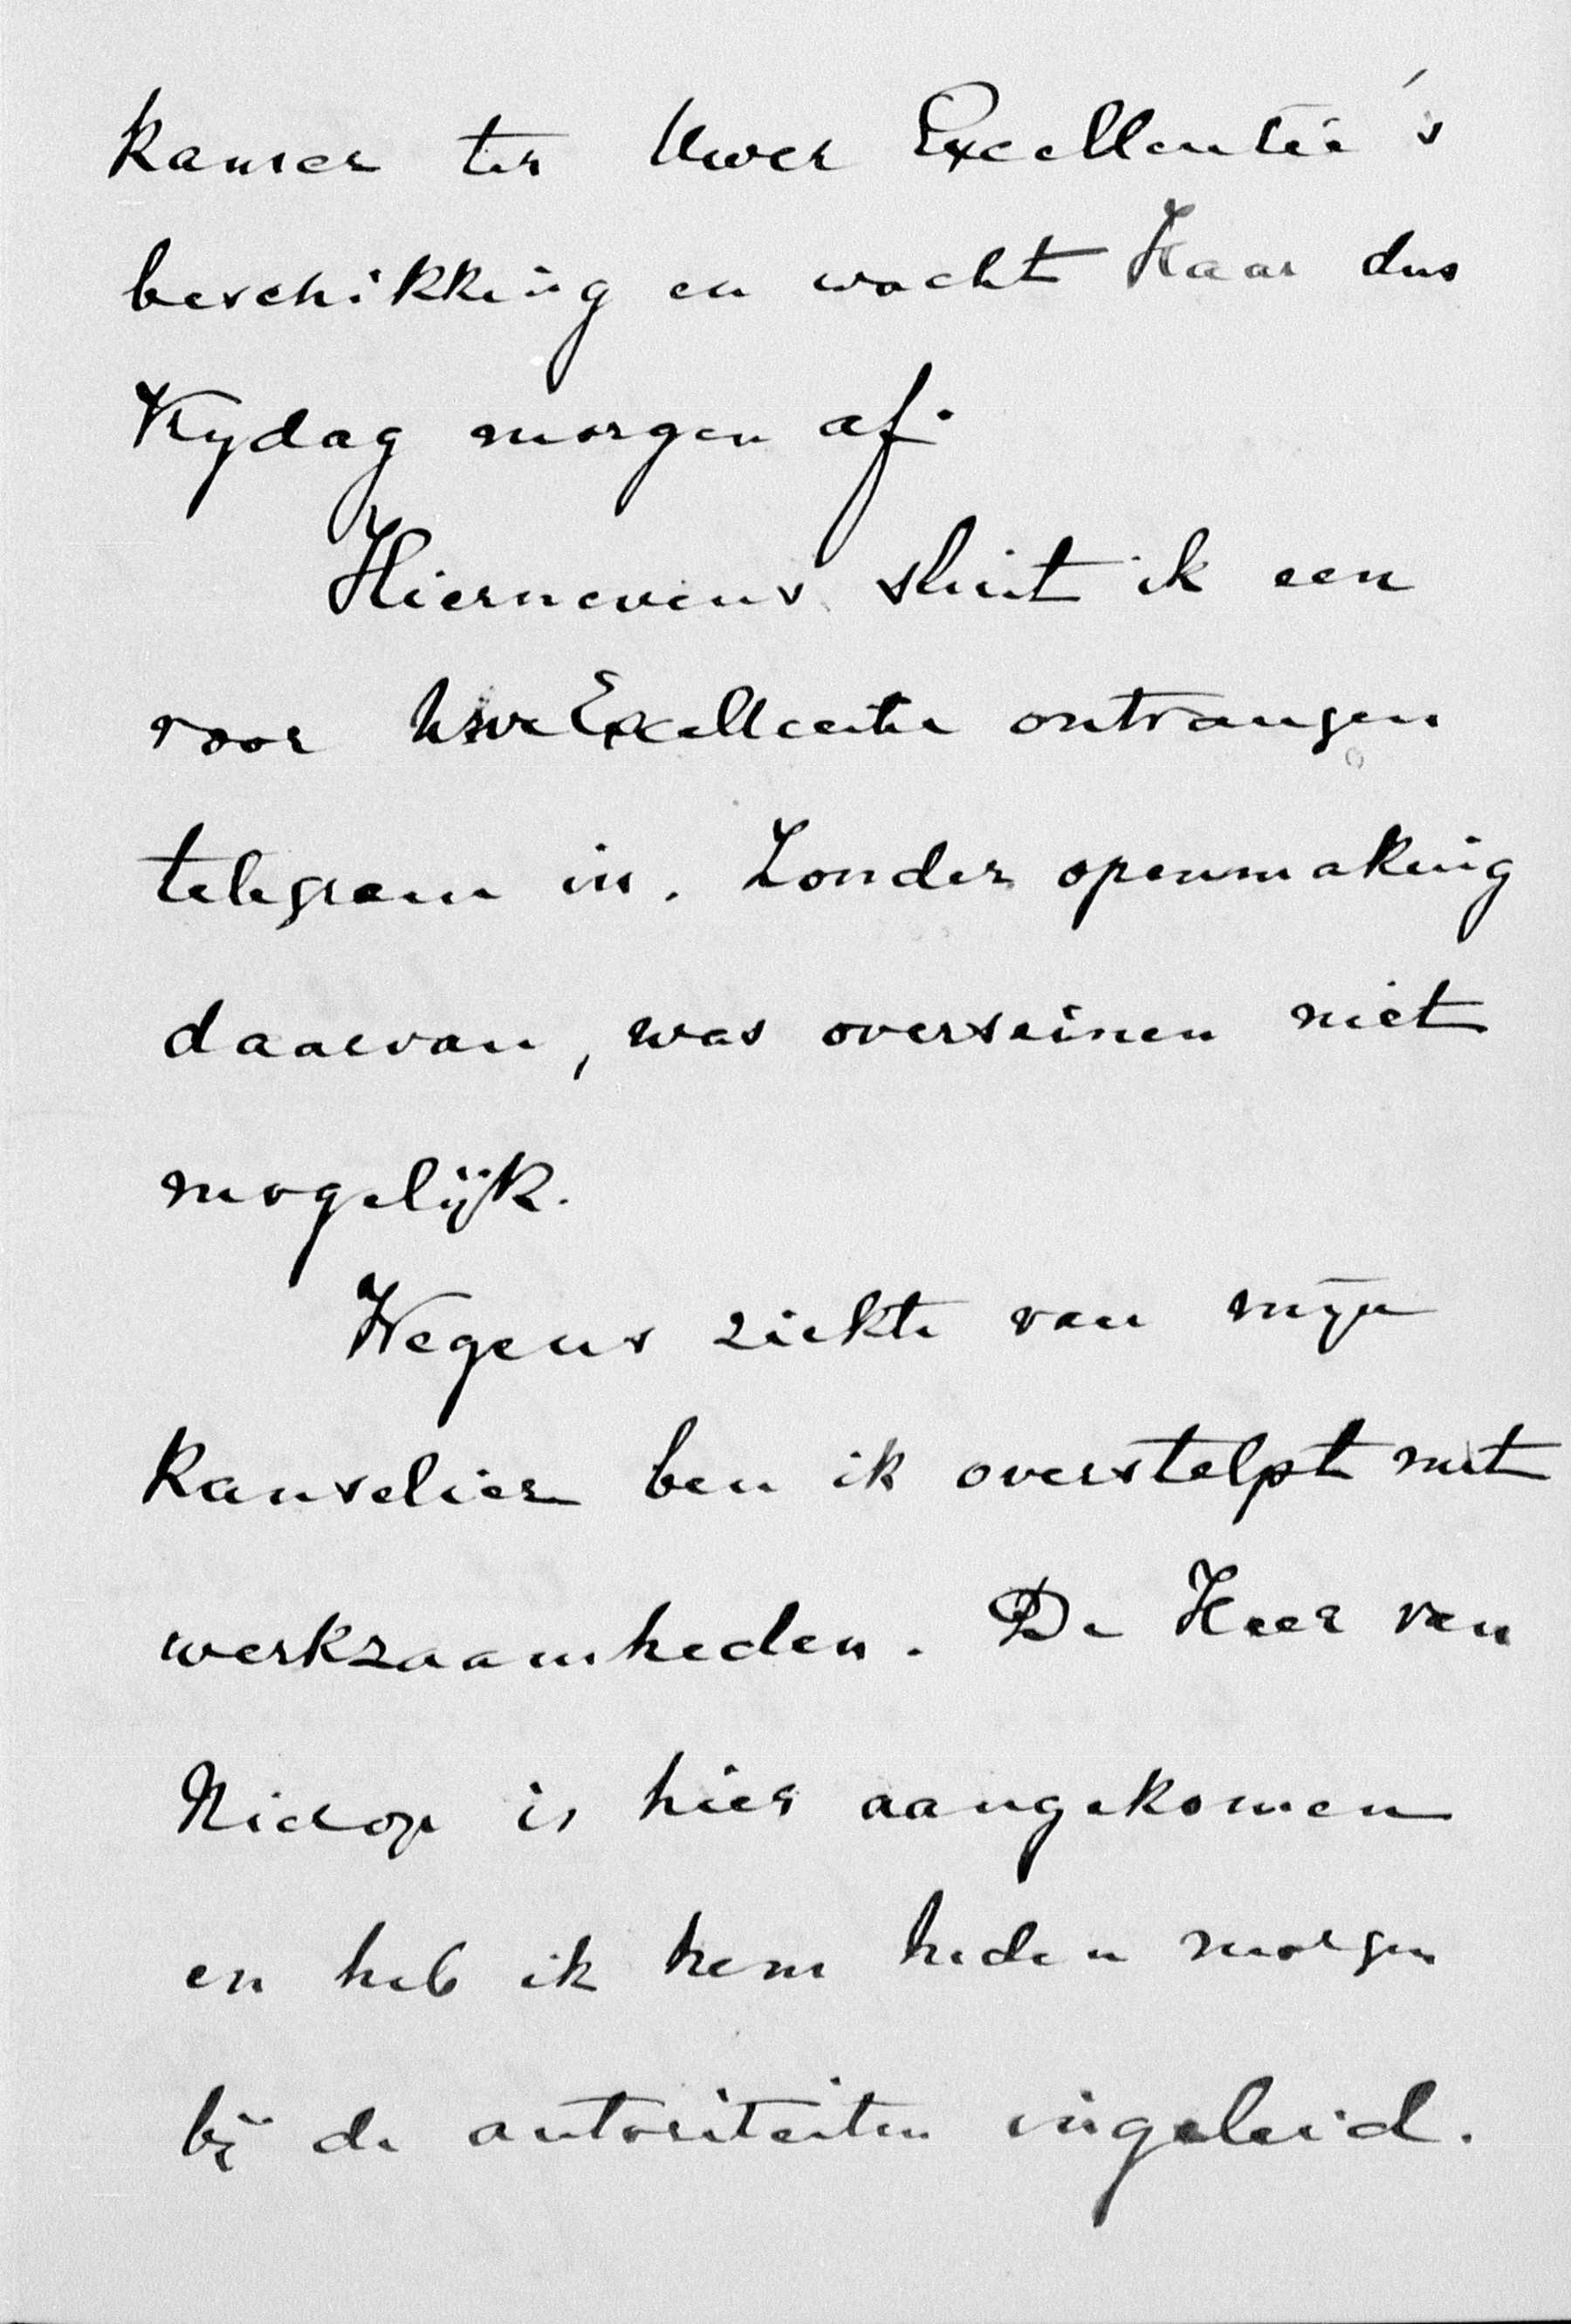 kamer ter Uwer Excellentie's
beschikking en wacht Haar dus
Vrydag morgen af.
Hiernevens sluit ik een
voor Uwe Excellentie ontvangen
telegram in. Zonder openmaking
daarvan, was overseinen niet
mogelijk.
Wegens ziekte van mijn
Kanselier ben ik overstelpt met
werkzaamheden. De Heer van
Nierop is hier aangekomen
en heb ik hem heden morgen
bij de autoriteiten ingeleid.